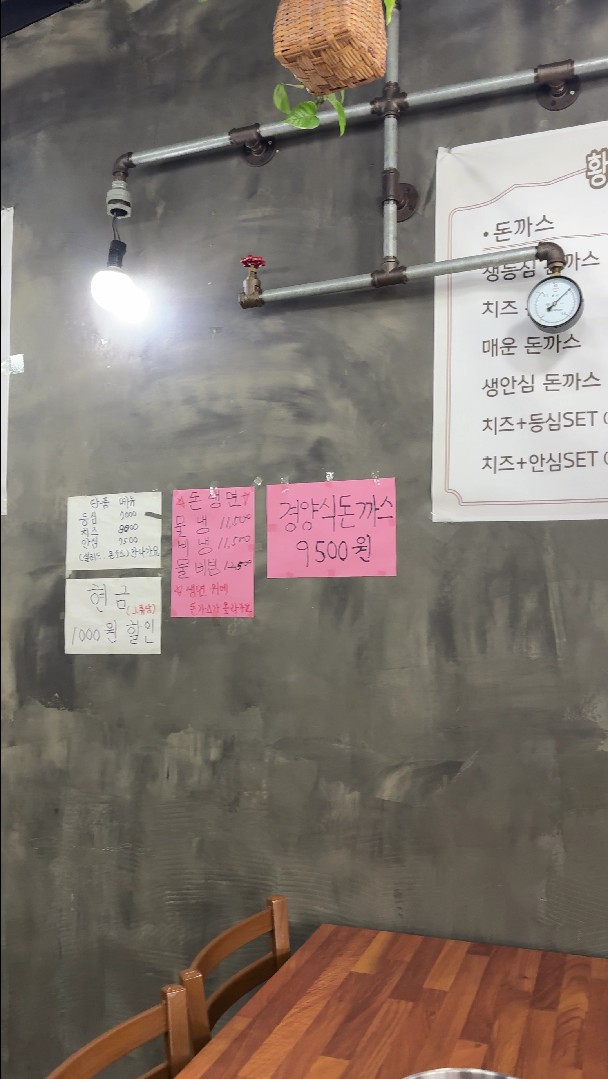 단품 메뉴
등심 7000
치즈
안심 7500
현금
1000원 할인
돈냉면
물냉 11,500
비냉 11,500
물비빔 12,500
냉면 위에
경양식돈까스
9500원
황
• 돈까스
생등심 돈까스
치즈
매운 돈까스
생안심 돈까스
치즈+등심SET
치즈+안심SET